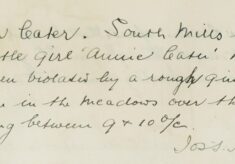 Eater. South Mills
tle girl 'Annie Eater'
en violated by a rough
in the meadows over th
ng between 9 & 10 o/c.
Jos S.